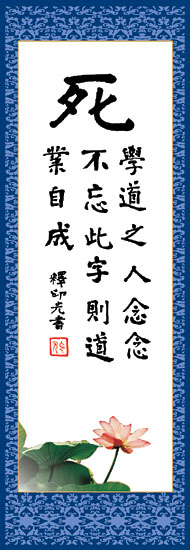 死
學道之人念念
不忘此字則道
業自成
釋印光書